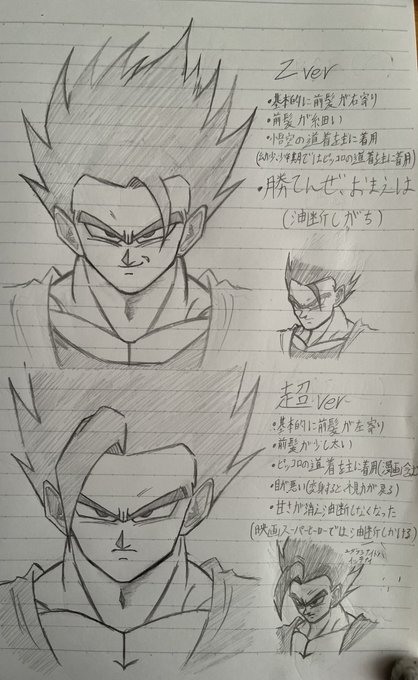 Z ver
・基本的に前髪が右寄り
・前髪が細い
・悟空の道着を主に着用
(幼少、少年期ではピッコロの道着を主に着用)
・勝てんぜ、おまえは
(油断しがち)
超ver
・基本的に前髪が左寄り
・前髪が少し太い
・ピッコロの道着を主に着用(漫画含む)
・目が悪い(変身すると視力が戻る)
・甘さが消え油断しなくなった
(映画スーパーヒーローでは油断しかける)